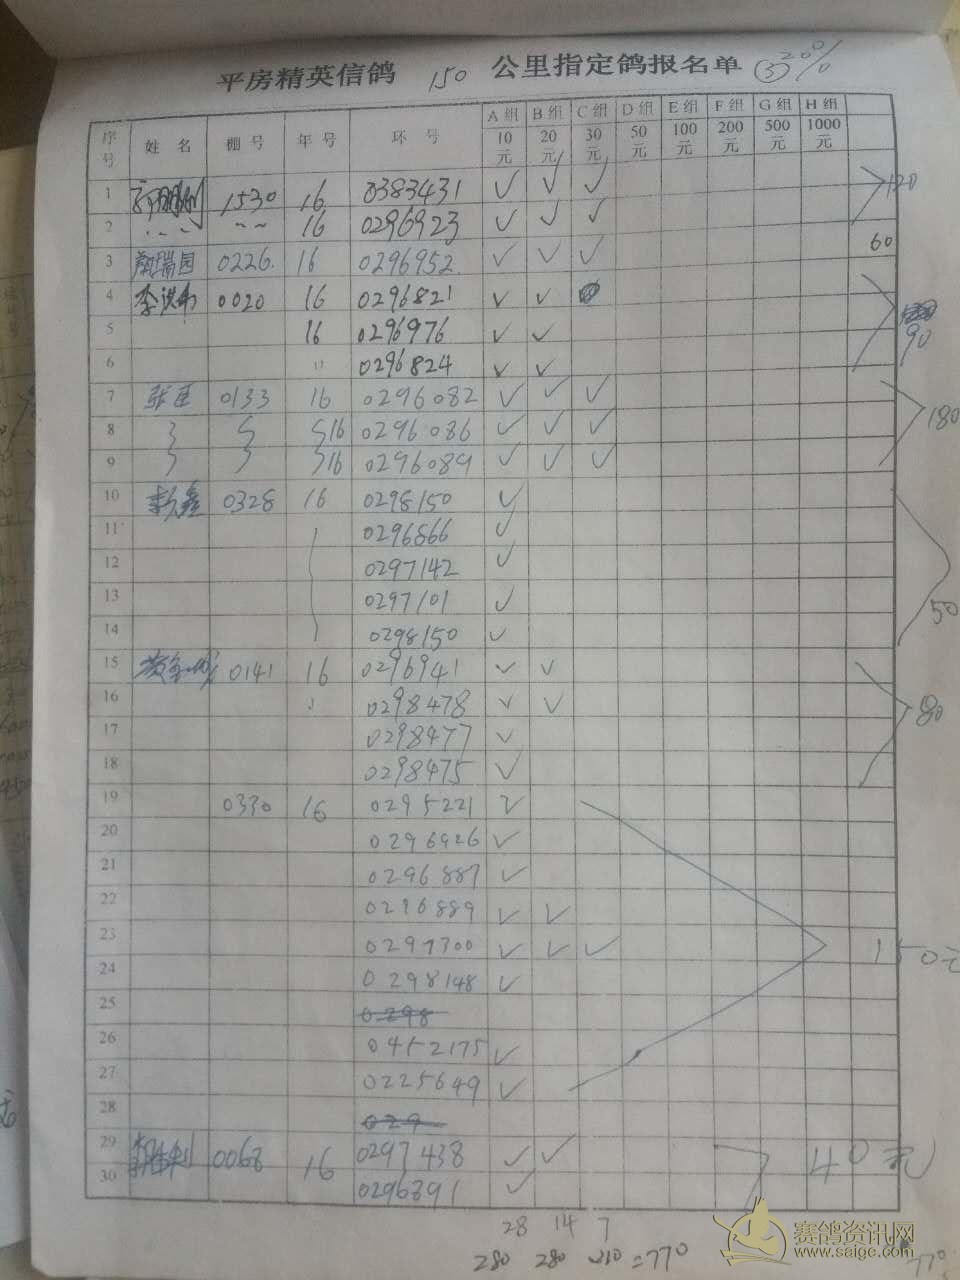 平房精英信鸽 150 公里指定鸽报名单 ③ 20%
序号 姓名 棚号 年号 环号 A组 10元 B组 20元 C组 30元 D组 50元 E组 100元 F组 200元 G组 500元 H组 1000元
1 1530 16 0383431 ✓ ✓ ✓ 120
2 16 0296923 ✓ ✓ ✓
3 颜瑞园 0226. 16 0296952. ✓ ✓ ✓ 60
4 0020 16 0296821 ✓ ✓
5 16 0296976 ✓ ✓ 90
6 〃 0296824 ✓ ✓
7 张臣 0133 16 0296082 ✓ ✓ ✓
8 16 0296086 ✓ ✓ ✓ 180
9 16 0296089 ✓ ✓ ✓
10 鑫 0328 16 0298150 ✓
11 0296866 ✓
12 0297142 ✓
13 0297101 ✓ 50
14 0298150 ✓
15 0141 16 0296941 ✓ ✓
16 0298478 ✓ ✓ 80
17 0298477 ✓
18 0298475 ✓
19 0330 16 0295221 ✓
20 0296926 ✓
21 0296887 ✓
22 0296889 ✓ ✓
23 0297300 ✓ ✓ ✓ 150元
24 0298148 ✓
25 0298
26 0452175 ✓
27 0225649 ✓
28 029
29 0068 16 0297438 ✓ ✓ 40元
30 0296891 ✓
28 14 7
280 280 210 =770
770
赛鸽资讯网
www.saige.com